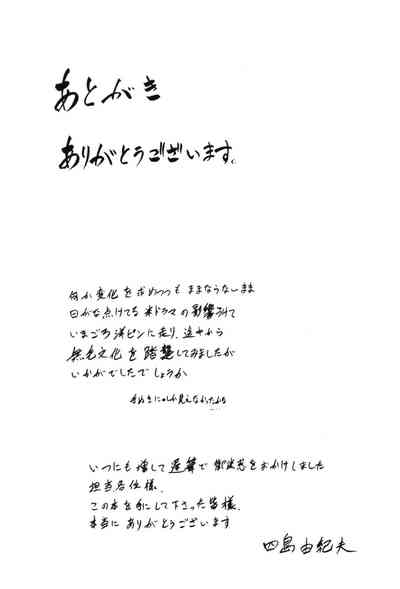 あとがき
ありがとうございます。
何か変化を求めつつもままならないまま
日がな点けてる米ドラマの影響うけて
いまごろ洋ピンに走り、遠巻から
無毛文化を踏襲してみましたが
いかがでしたでしょうか
手ぬきにしか見えなかったかも
いつにも増して遅筆で御迷惑をおかけしました
担当各位様、
この本を手にして下さった皆様、
本当にありがとうございます
四島由紀夫